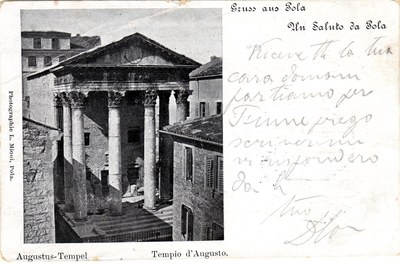 Gruss aus Pola
Un Saluto da Pola
Ricevetti la tua
cara domani
partiamo per
Fiume prego
scrivermi
risponderò
da
tuo
Photographie L. Mioni, Pola.
Augustus-Tempel
Tempio d'Augusto.